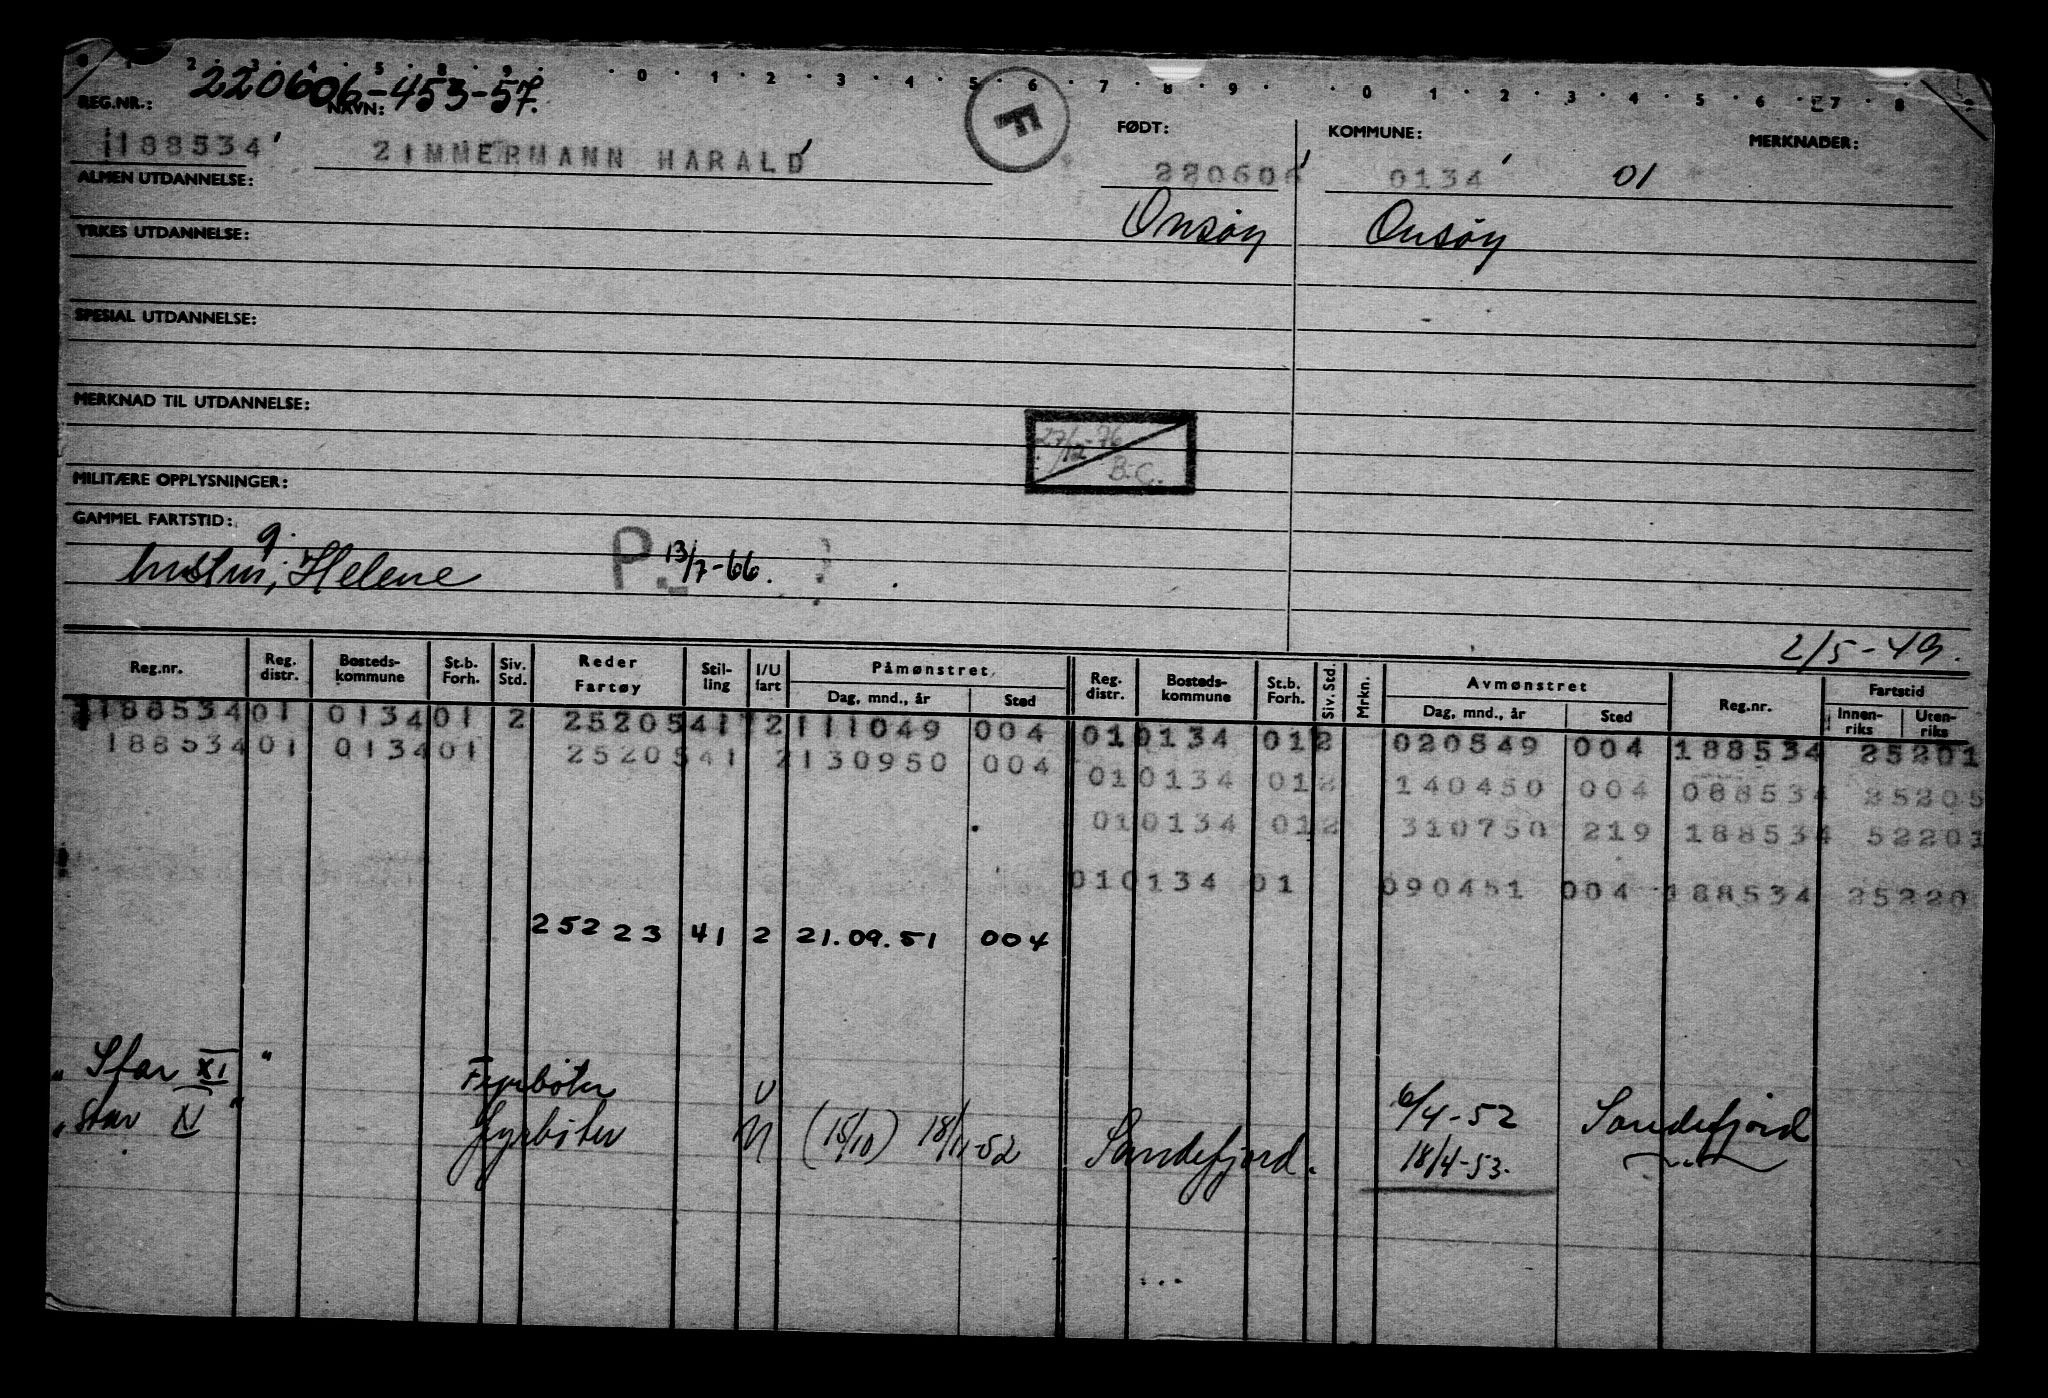 1 2 3 4 5 8 9 0 1 2 3 4 5 6 7 8 9 0 1 2 3 4 5 6 7 8
220606-453-57.
REG.NR.: NAVN: F FØDT: KOMMUNE: MERKNADER:
188534 ZIMMERMANN HARALD 220606 0134 01
ALMEN UTDANNELSE:
Onsøy Onsøy
YRKES UTDANNELSE:
SPESIAL UTDANNELSE:
MERKNAD TIL UTDANNELSE:
27/12-76
B.C.
MILITÆRE OPPLYSNINGER:
GAMMEL FARTSTID:
g.
hustru; Helene P. 13/7-66.
2/5-49.
Reg.nr. Reg. distr. Bosteds- kommune St.b. Forh. Siv. Std. Reder Fartøy Stil- ling I/U fart Påmønstret Dag, mnd., år Sted Reg. distr. Bosteds- kommune St.b. Forh. Siv. Std. Mrkn. Avmønstret Dag, mnd., år Sted Reg.nr. Fartstid Innen- riks Uten- riks
188534 01 0134 01 2 25205 41 2 111049 004 01 0134 01 2 020549 004 188534 25201
188534 01 0134 01 25205 41 2 130950 004 01 0134 01 2 140450 004 088534 25205
01 0134 01 2 310750 219 188534 52201
01 0134 01 090451 004 188534 25220
25223 41 2 21.09.51 004
"Star XI" Fyrbøter U 6/4-52 Sandefjord
"Star IV" Fyrbøter U (15/10) 18/11-52 Sandefjord. 18/4-53. —"—